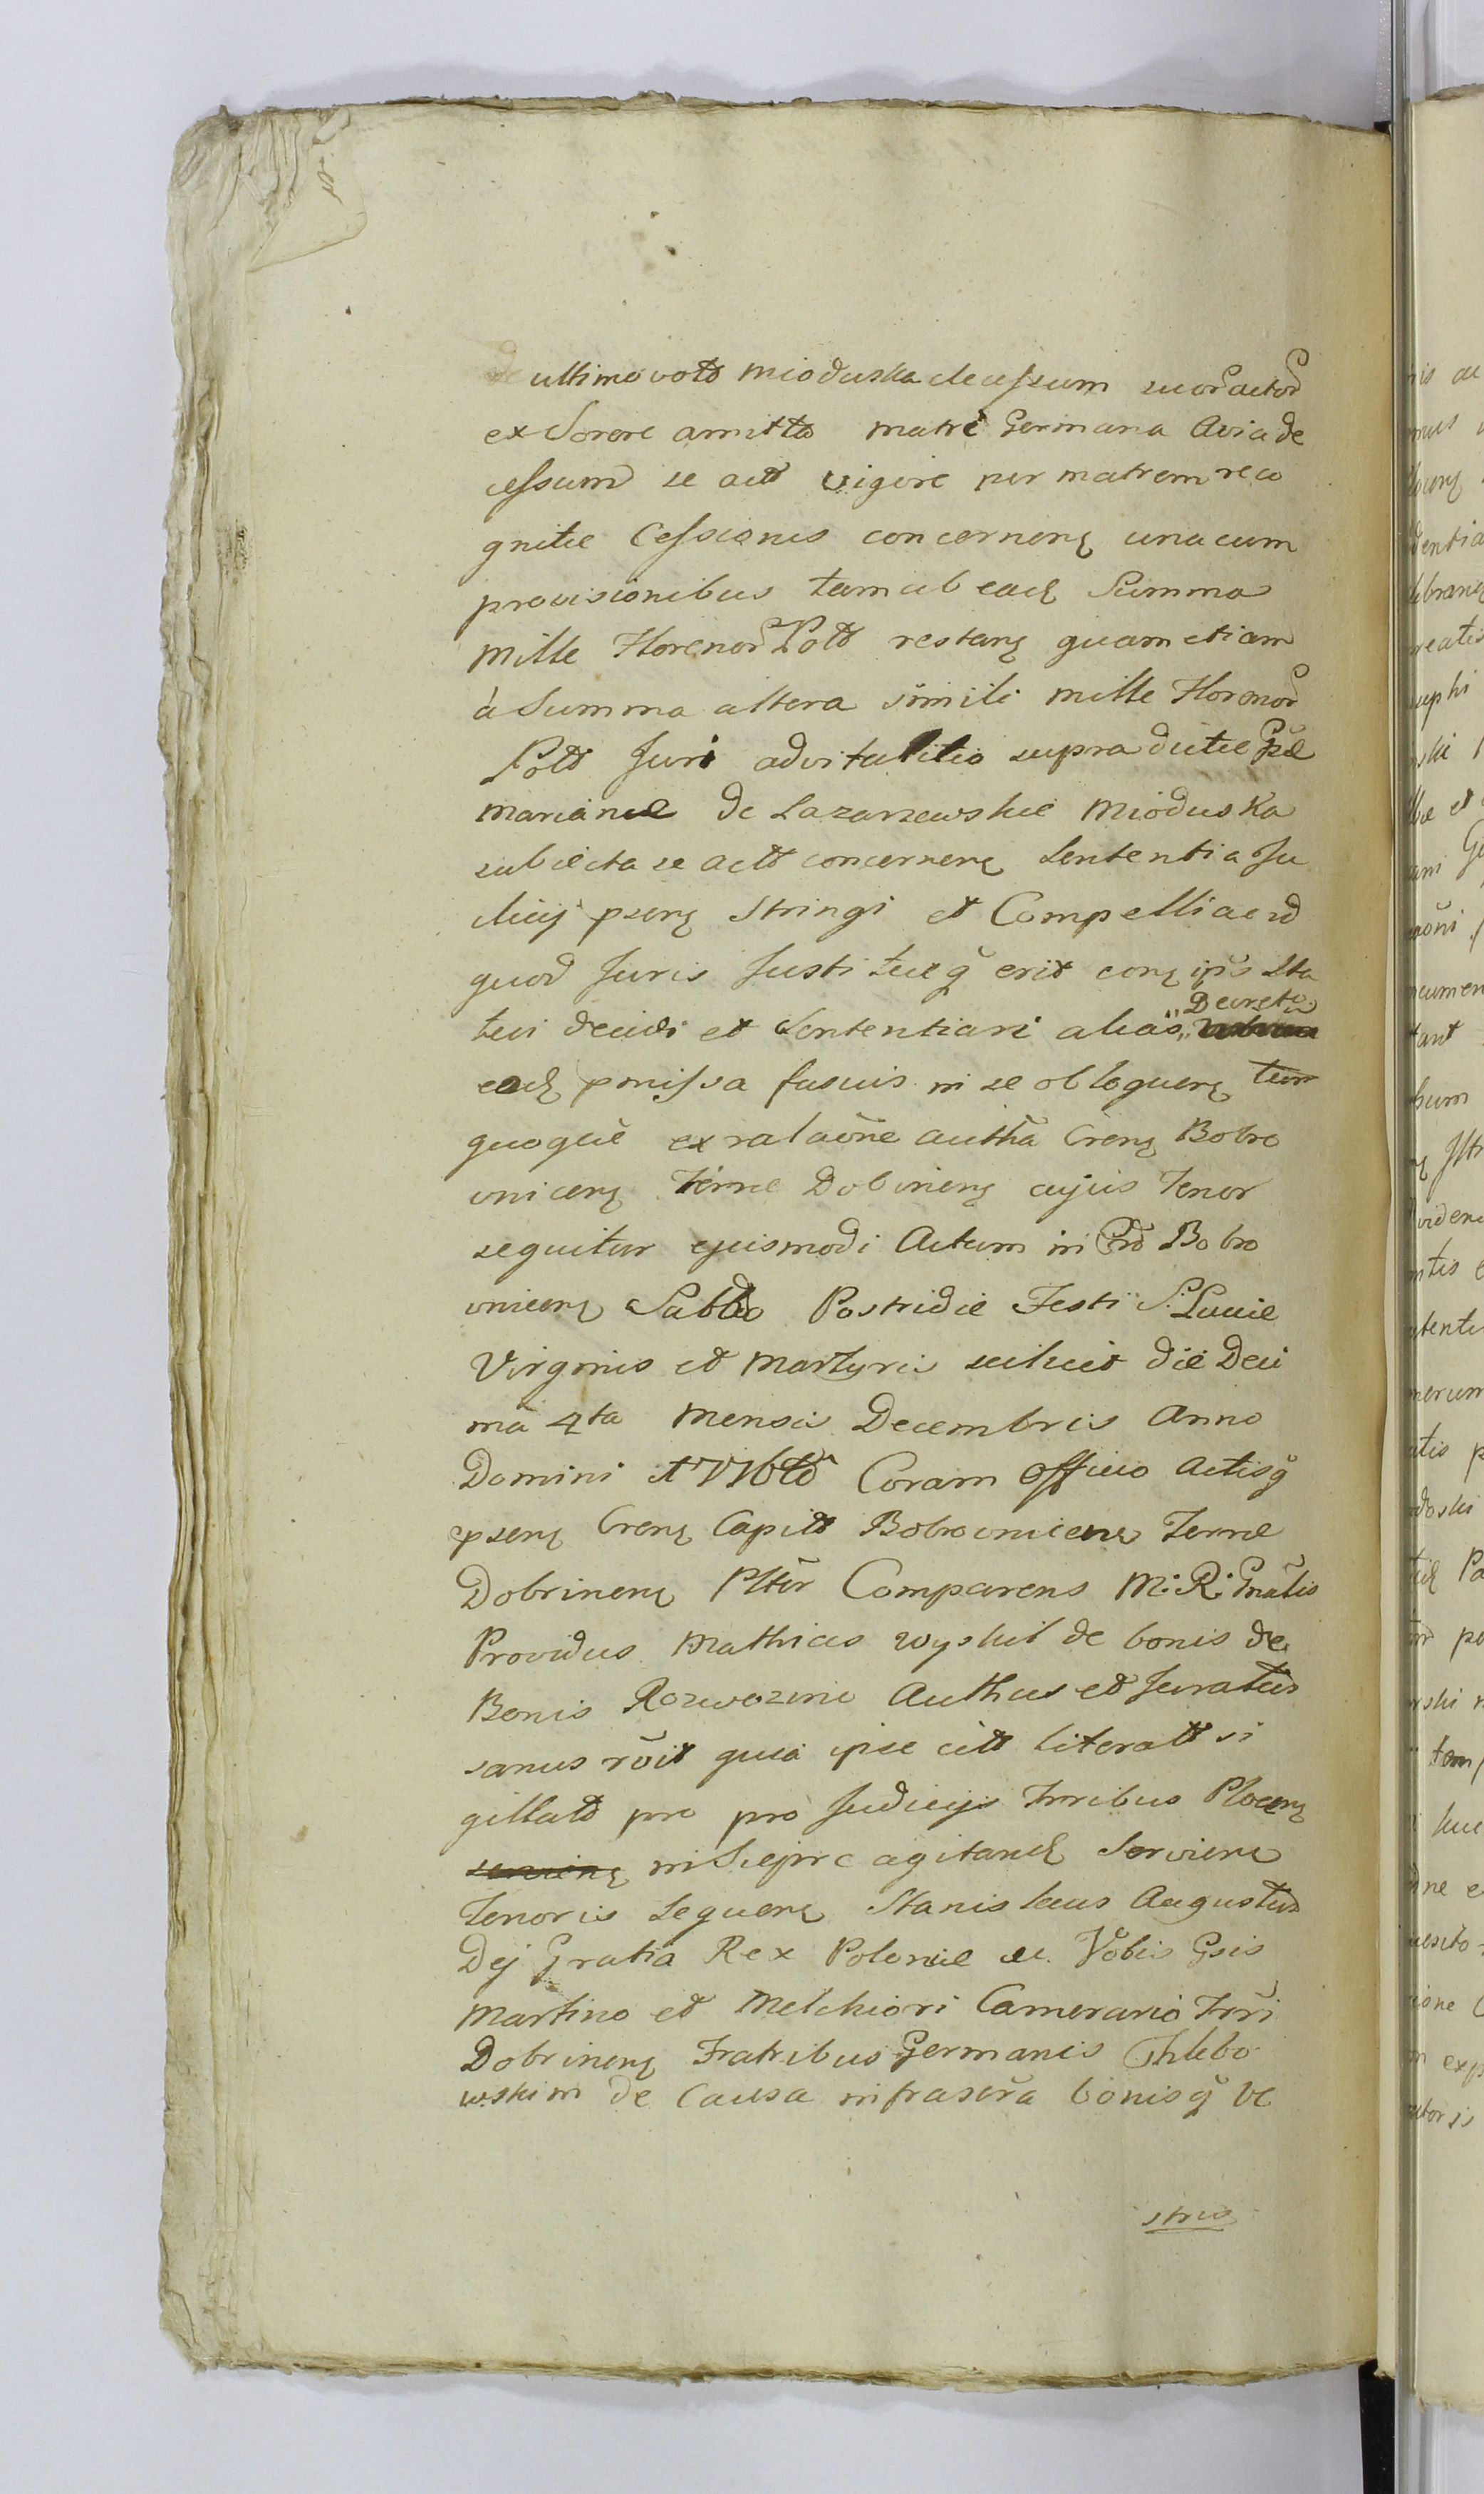 de ultimo voto Mioduska decessum suor actor
ex Sorore amitta matre Germana Avia de
cessum se act vigore per matrem reco
gnitae Cessionis concernen una cum
provisionibus tam ab ead Summa
Mille Florenor Poll restan quam etiam
à Summa altera simili mille Florenor
Poll Juri advitalitio supra dictae Gsae
Mariannae de Lazarzewskie Mioduska
subiecta se act concernen Sententia Ju
dicij psen Stringi et Compelli ac id
quod Juris Justitiaeq erit con ipūs Sta
tui decidi et Sententiari alias „Decreto
ead pmissa fusius in se obloquen tum
quoque ex relaōne authā Cren Bobro
vnicen Terrae Dobrinen cujus Tenor
sequitur ejusmodi Actum in Cro Bobro
vnicen Sabbo Postridie Festi S. Luciae
Virginis et Martyris scilicet die Deci
ma 4ta Mensis Decembris Anno
Domini Coram Officio Actisq
psen Cren Capit Bobrovnicen Terrae
Dobrinen Pltēr Comparens M: R: Gnālis
Providus Mathias Wyskit de bonis de
Bonis Rozwozino Authus et Juratus
sanus rōit quia ipse citt literatt si
gillatt pro pro Judicijs Trribus Plocen
in Sieprc agitand Servien
Tenoris Sequen Stanislaus Augustus
Dej Gratia Rex Poloniae ec. Vobis Gsis
Martino et Melchiori Camerario Trri
Dobrinen Fratribus Germanis Chlebo
wskim de Causa infrascra bonisq Ve
stris